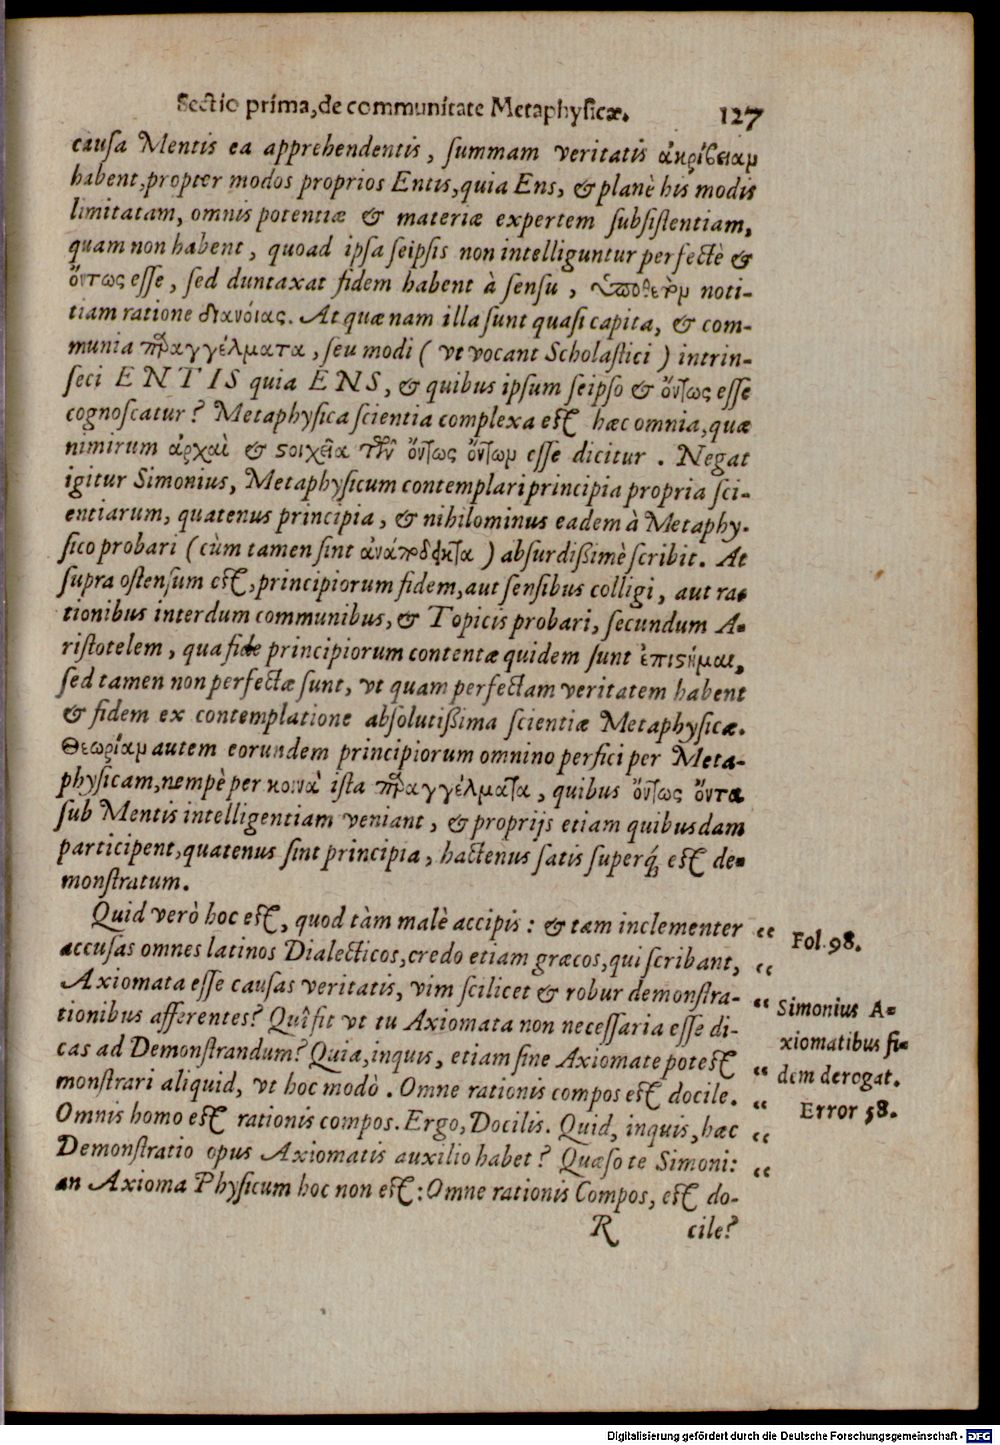 Sectio prima, de communitate Metaphysicæ. 127
causa Mentis ea apprehendentis, summam veritatis ἀκρίβειαμ
habent, propter modos proprios Entis, quia Ens, & planè his modis
limitatam, omnis potentiæ & materiæ expertem subsistentiam,
quam non habent, quoad ipsa seipsis non intelliguntur perfectè &
ὄντως esse, sed duntaxat fidem habent à sensu, noti-
tiam ratione διανόιας. At quænam illa sunt quasi capita, & com-
munia πραγγέλματα, seu modi (vt vocant Scholastici) intrin-
seci ENTIS quia ENS, & quibus ipsum seipso & ὄντως esse
cognoscatur? Metaphysica scientia complexa est hæc omnia, quæ
nimirum ἀρχαὶ & ϛοιχεῖα τῶν ὄντως ὄντωμ esse dicitur. Negat
igitur Simonius, Metaphysicum contemplari principia propria sci-
entiarum, quatenus principia, & nihilominus eadem à Metaphy-
sico probari (cùm tamen sint ἀναπόδεικτα) absurdißimè scribit. At
supra ostensum est, principiorum fidem, aut sensibus colligi, aut ra-
tionibus interdum communibus, & Topicis probari, secundum A-
ristotelem, qua fide principiorum contentæ quidem sunt ἐπιϛῆμαι,
sed tamen non perfectæ sunt, vt quam perfectam veritatem habent
& fidem ex contemplatione absolutißima scientiæ Metaphysicæ.
Θεωρίαμ autem eorundem principiorum omnino perfici per Meta-
physicam, nempè per κοινὰ ista πραγγέλματα, quibus ὄντως ὄντα
sub Mentis intelligentiam veniant, & proprijs etiam quibusdam
participent, quatenus sint principia, hactenus satis superq́; est de-
monstratum.
Quid verò hoc est, quod tàm malè accipis: & tam inclementer “ Fol. 98.
accusas omnes latinos Dialecticos, credo etiam græcos, qui scribant, “
Axiomata esse causas veritatis, vim scilicet & robur demonstra- “ Simonius A-
tionibus afferentes? Quî fit vt tu Axiomata non necessaria esse di- xiomatibus fi-
cas ad Demonstrandum? Quia, inquis, etiam sine Axiomate potest “ dem derogat.
monstrari aliquid, vt hoc modò. Omne rationis compos est docile. “ Error 58.
Omnis homo est rationis compos. Ergo, Docilis. Quid, inquis, hæc “
Demonstratio opus Axiomatis auxilio habet? Quæso te Simoni: “
an Axioma Physicum hoc non est: Omne rationis Compos, est do-
R cile?
Digitalisierung gefördert durch die Deutsche Forschungsgemeinschaft - DFG